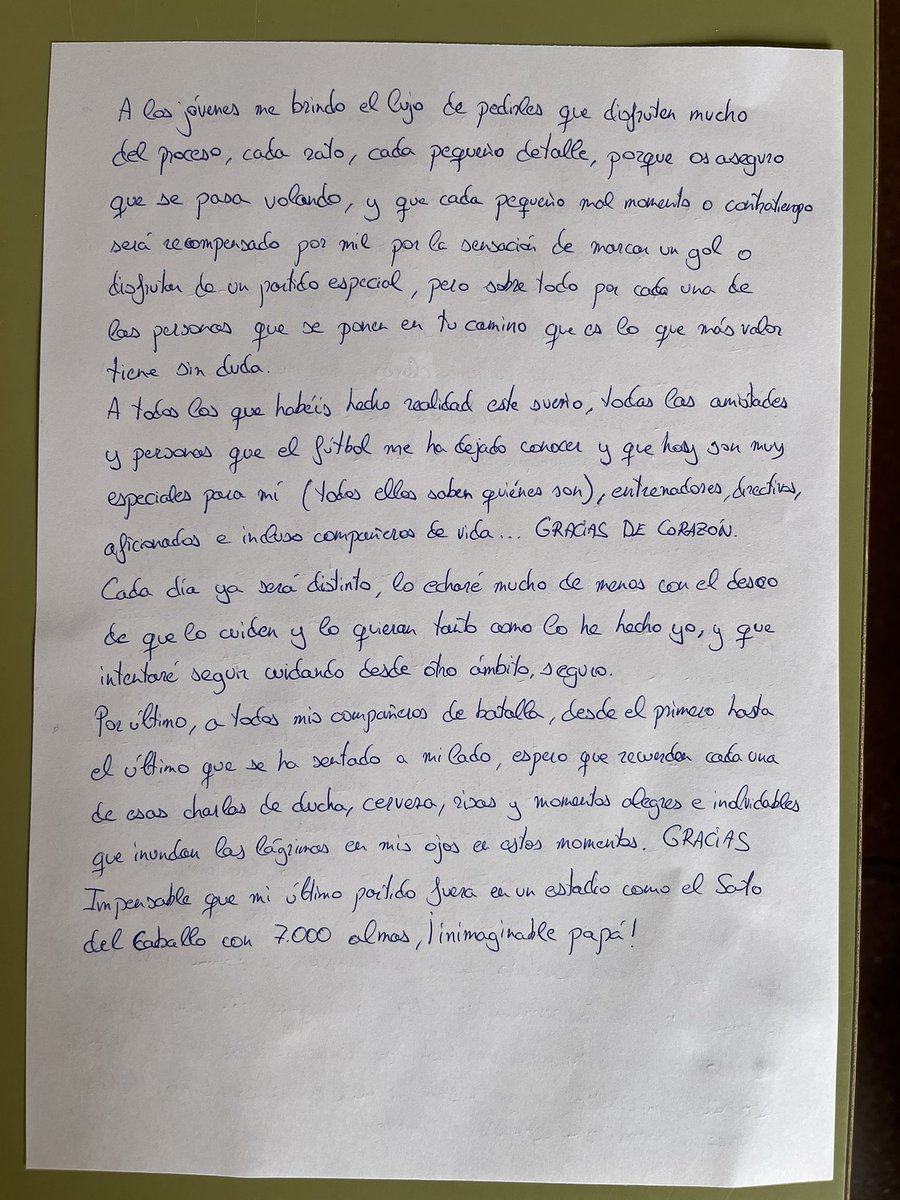 A los jóvenes me brindo el lujo de pedirles que disfruten mucho
del proceso, cada rato, cada pequeño detalle, porque os aseguro
que se pasa volando, y que cada pequeño mal momento o contratiempo
será recompensado por mil por la sensación de marcar un gol o
disfrutar de un partido especial, pero sobre todo por cada una de
las personas que se ponen en tu camino que es lo que más valor
tiene sin duda.
A todos los que habéis hecho realidad este sueño, todas las amistades
y personas que el fútbol me ha dejado conocer y que hoy son muy
especiales para mí (todos ellos saben quiénes son), entrenadores, directivos,
aficionados e incluso compañeros de vida... GRACIAS DE CORAZÓN.
Cada día ya será distinto, lo echaré mucho de menos con el deseo
de que lo cuiden y lo quieran tanto como lo he hecho yo, y que
intentaré seguir cuidando desde otro ámbito, seguro.
Por último, a todos mis compañeros de batalla, desde el primero hasta
el último que se ha sentado a mi lado, espero que recuerden cada una
de esas charlas de ducha, cerveza, risas y momentos alegres e inolvidables
que inundan las lágrimas en mis ojos en estos momentos. GRACIAS
Impensable que mi último partido fuera en un estadio como el Salto
del Caballo con 7.000 almas, ¡inimaginable papá!